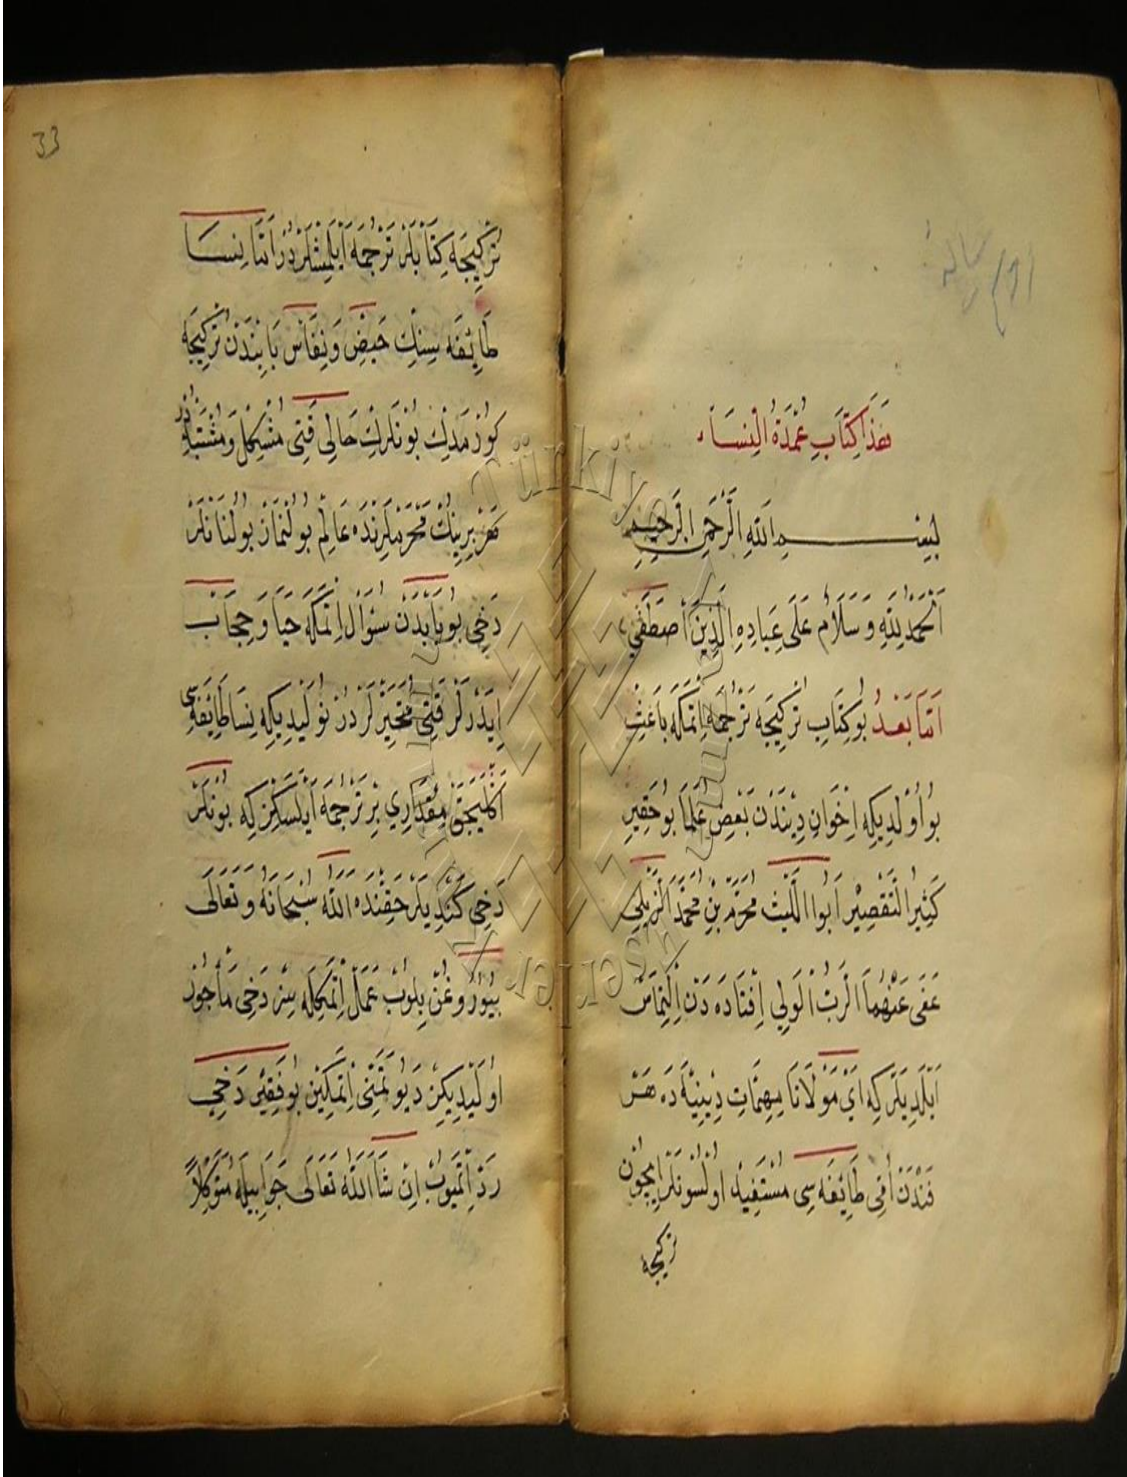 هَذَا كِتَابِ عُمْدَةُ النِّسَاء
بِسْمِ اللّٰهِ الرَّحْمٰنِ الرَّحِيمِ
اَلْحَمْدُ لِلّٰهِ وَسَلَامٌ عَلَى عِبَادِهِ الَّذِينَ اصْطَفَى
اَمَّا بَعْدُ بُو كِتَابِ تُرْكِيجَه تَرْجُمَه اِتْمَكَه بَاعِثْ
بُو اُولْدِيكِه اِخْوَانِ دِينْدَنْ بَعْضِ عُلَمَا بُو حَقِيرِ
كَثِيرُ التَّقْصِيْر اَبُوا اللَّيْث مُحَرَّم بْنِ مُحَمَّدْ الزِّيلِي
عَفَى عَنْهُمَا الرَّبُّ الْوَلِي اِفْتَادَه دَنْ اِلْتِمَاسْ
اَيْلَدِيلَرْ كِه اَيْ مَوْلَانَا مِهِمَّاتِ دِينِيَّه دَه هَرْ
فَنْدَنْ اُمِّى طَائِفَه سِى مُسْتَفِيدْ اُولْسُونْلَرْ اِيچُونْ
تركيجه
33
تُرْكِيجَه كِتَابْلَرْ تَرْجُمَه اَيْلَمِشْلَرْدُرْ اَمَّا نِسَا
طَائِفَه سِنِكْ حَيْضِ وَنِفَاسْ بَابِنْدَنْ تُرْكِيجَه
كُورْمَدِكْ بُونْلَرِكْ حَالِى قَتِى مُشْكِلْ وَمُشْتَبَهْدُرْ
هَرْ بِرِينِكْ مَحْرَمْلَرِنْدَه عَالِمْ بُولُنْمَازْ بُولُنَانْلَرْ
دَخِي بُو بَابْدَنْ سُؤَالْ اِتْمَكَه حَيَا وَحِجَابْ
اِيدَرْلَرْ قَتِى مُتَحَيِّرْلَرْدُرْ نُولَيْدِيكِه نِسَا طَائِفَه سِى
اَكْلَيَجَقْ مِقْدَارِي بِرْ تَرْجُمَه اَيْلَسَكِزْ كِه بُونْلَرْ
دَخِي كَنْدِيلَرْ حَقِنْدَه اَللّٰهُ سُبْحَانَهُ وَتَعَالَى
بُيُورُوغُنْ بِلُوبْ عَمَلْ اِتْمَكِلَه سِزْ دَخِى مَأْجُورْ
اُولَيْدِيكِزْ دَيُو تَمَنِّى اِتْمَكِينْ بُو فَقِيرْ دَخِي
رَدْ اِتْمَيُوبْ اِنْ شَاءَ اللّٰهُ تَعَالَى جَوَابِيلَه مُتَوَكِّلًا